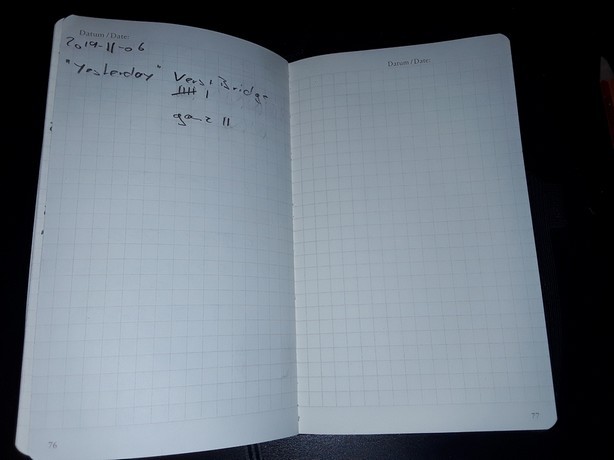 Datum / Date:
2019-11-06
"Yesterday" Vers, Bridge
卌 I
ganz II
76
Datum / Date:
77